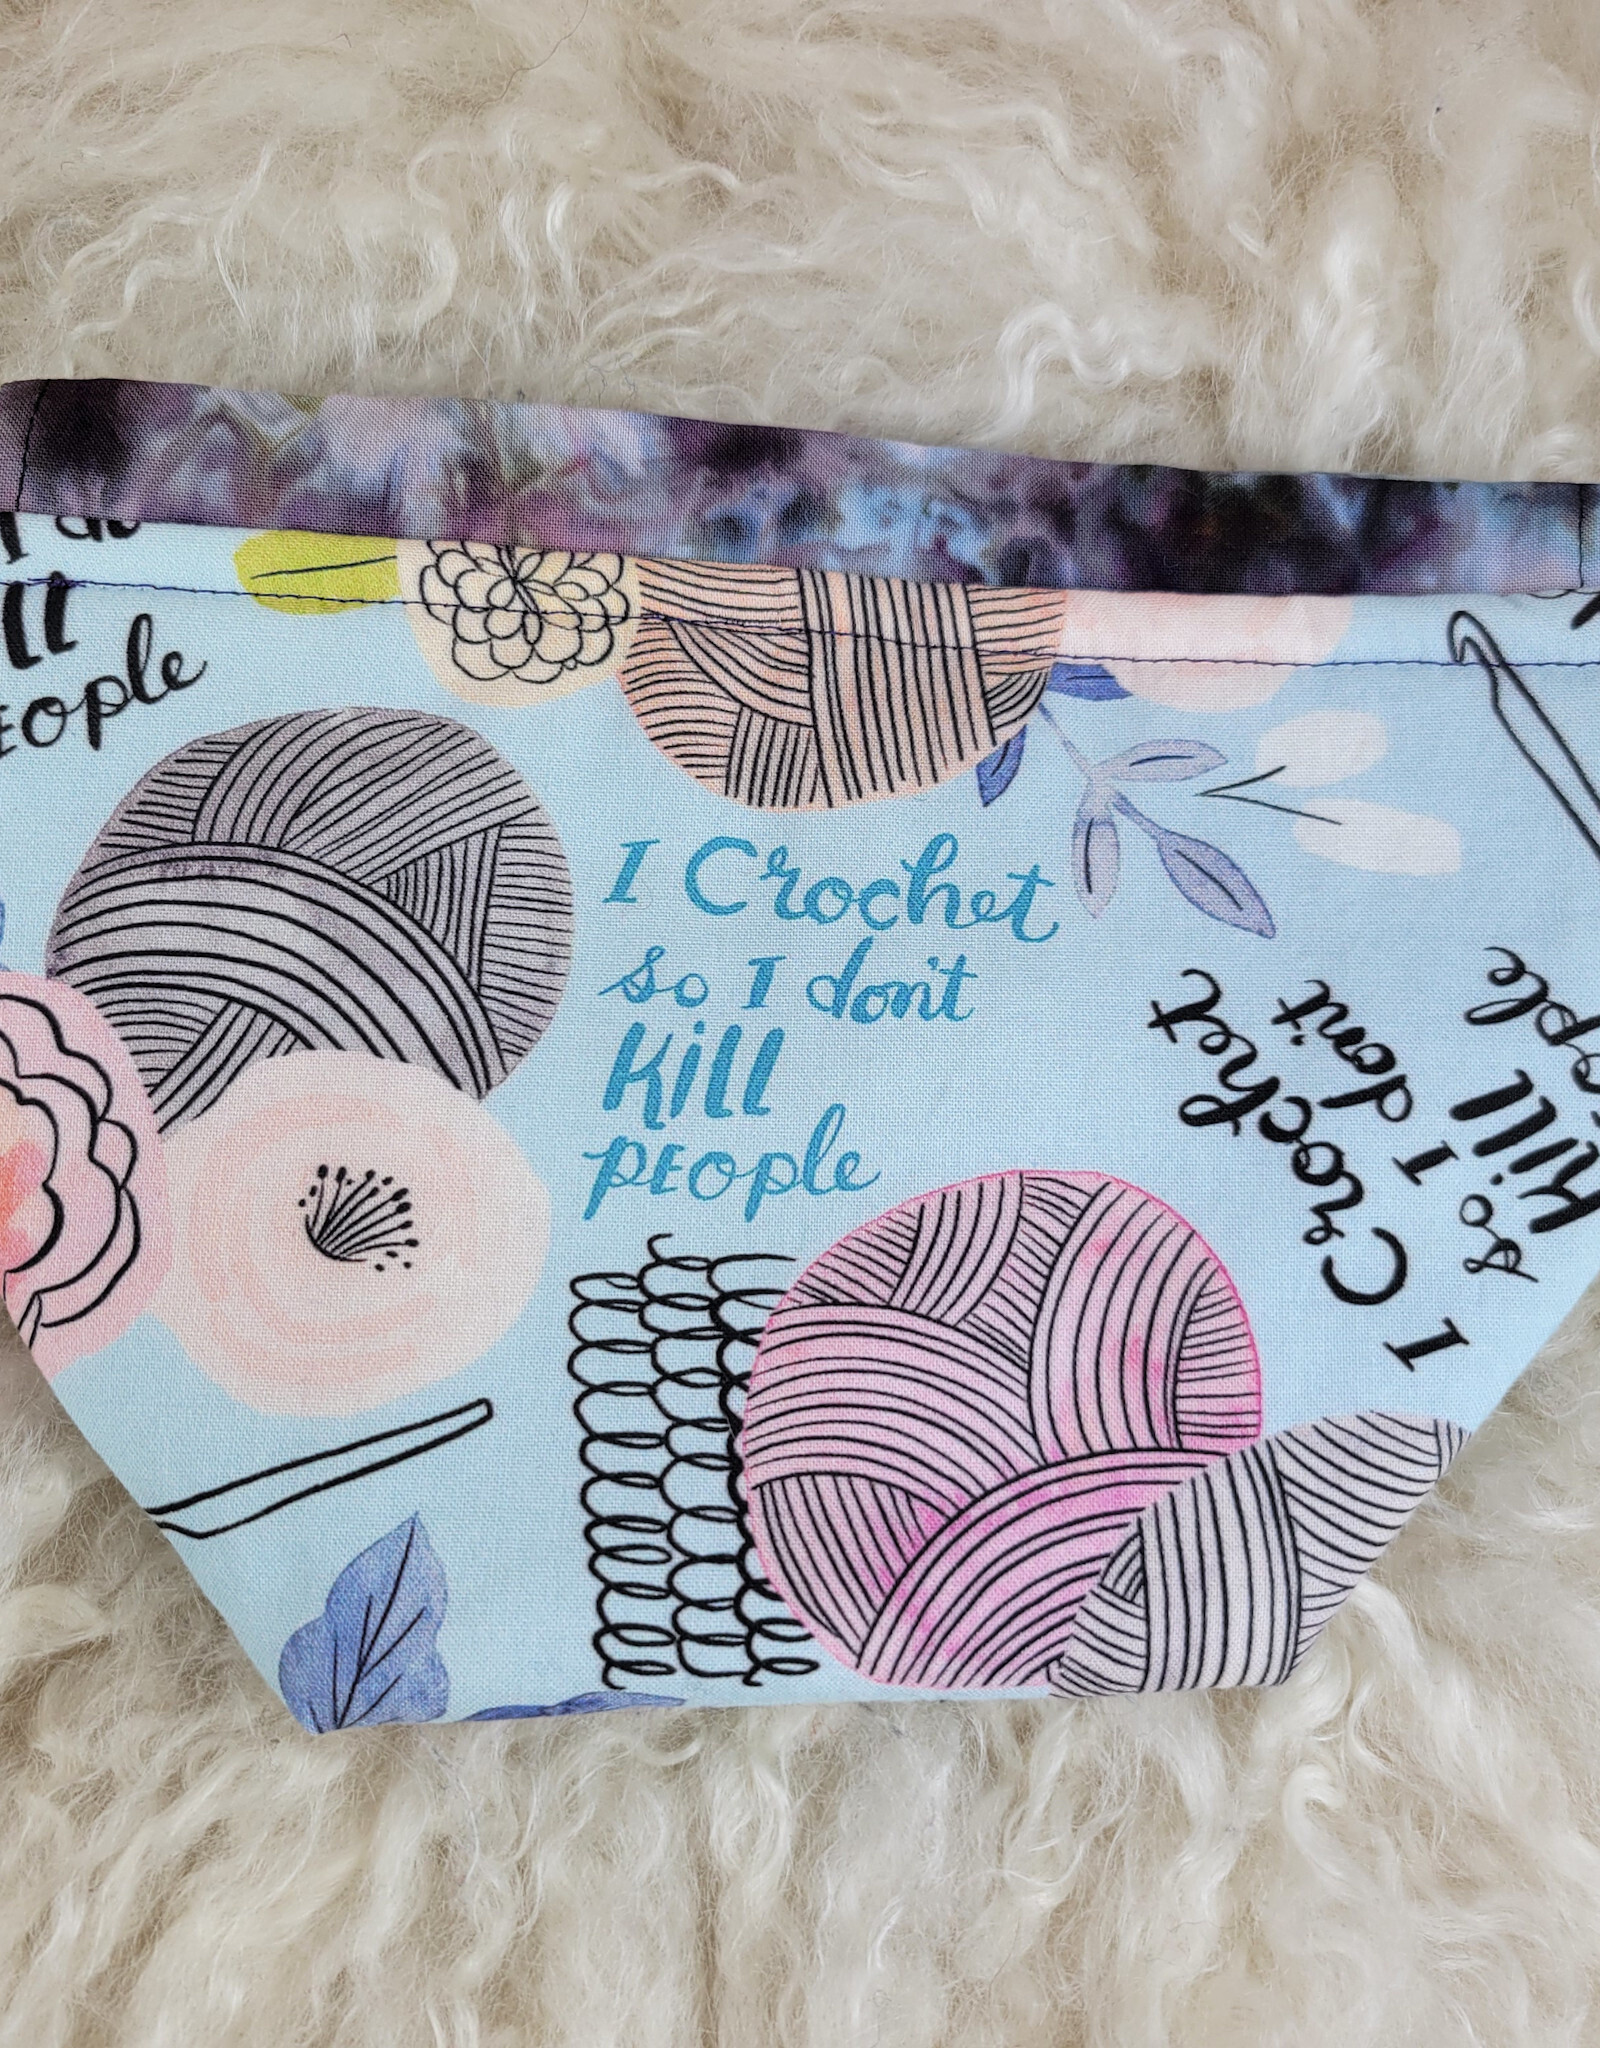 people
I Crochet
so I don't
kill
people
I Crochet
so I don't
kill